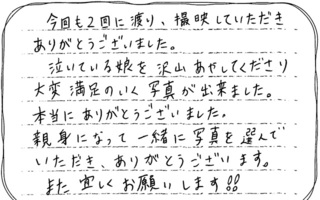 今回も2回に渡り、撮映していただき
ありがとうございました。
泣いている娘を沢山あやしてくださり
大変満足のいく写真が出来ました。
本当にありがとうございました。
親身になって一緒に写真を選んで
いただき、ありがとうございます。
また宜しくお願いします!!